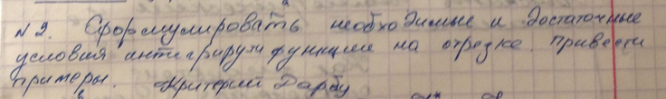 № 2. Сформулировать необходимые и достаточные
условия интегрируем функции на отрезке. Привести
примеры. Критерий Дарбу